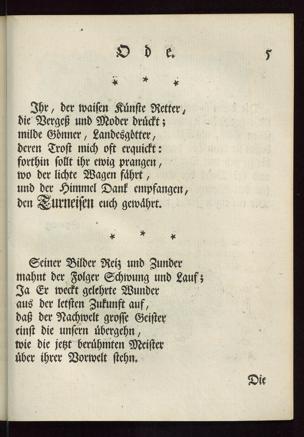 Ode. 5
* * *
Ihr, der waisen Künste Retter,
die Vergeß und Moder drückt;
milde Gönner, Landesgötter,
deren Trost mich oft erquickt:
forthin sollt ihr ewig prangen,
wo der lichte Wagen fährt,
und der Himmel Dank empfangen,
den Turneisen euch gewährt.
* * *
Seiner Bilder Reiz und Zunder
mahnt der Folger Schwung und Lauf;
Ja Er weckt gelehrte Wunder
aus der letsten Zukunft auf,
daß der Nachwelt grosse Geister
einst die unsern übergehn,
wie die jetzt berühmten Meister
über ihrer Vorwelt stehn.
Die